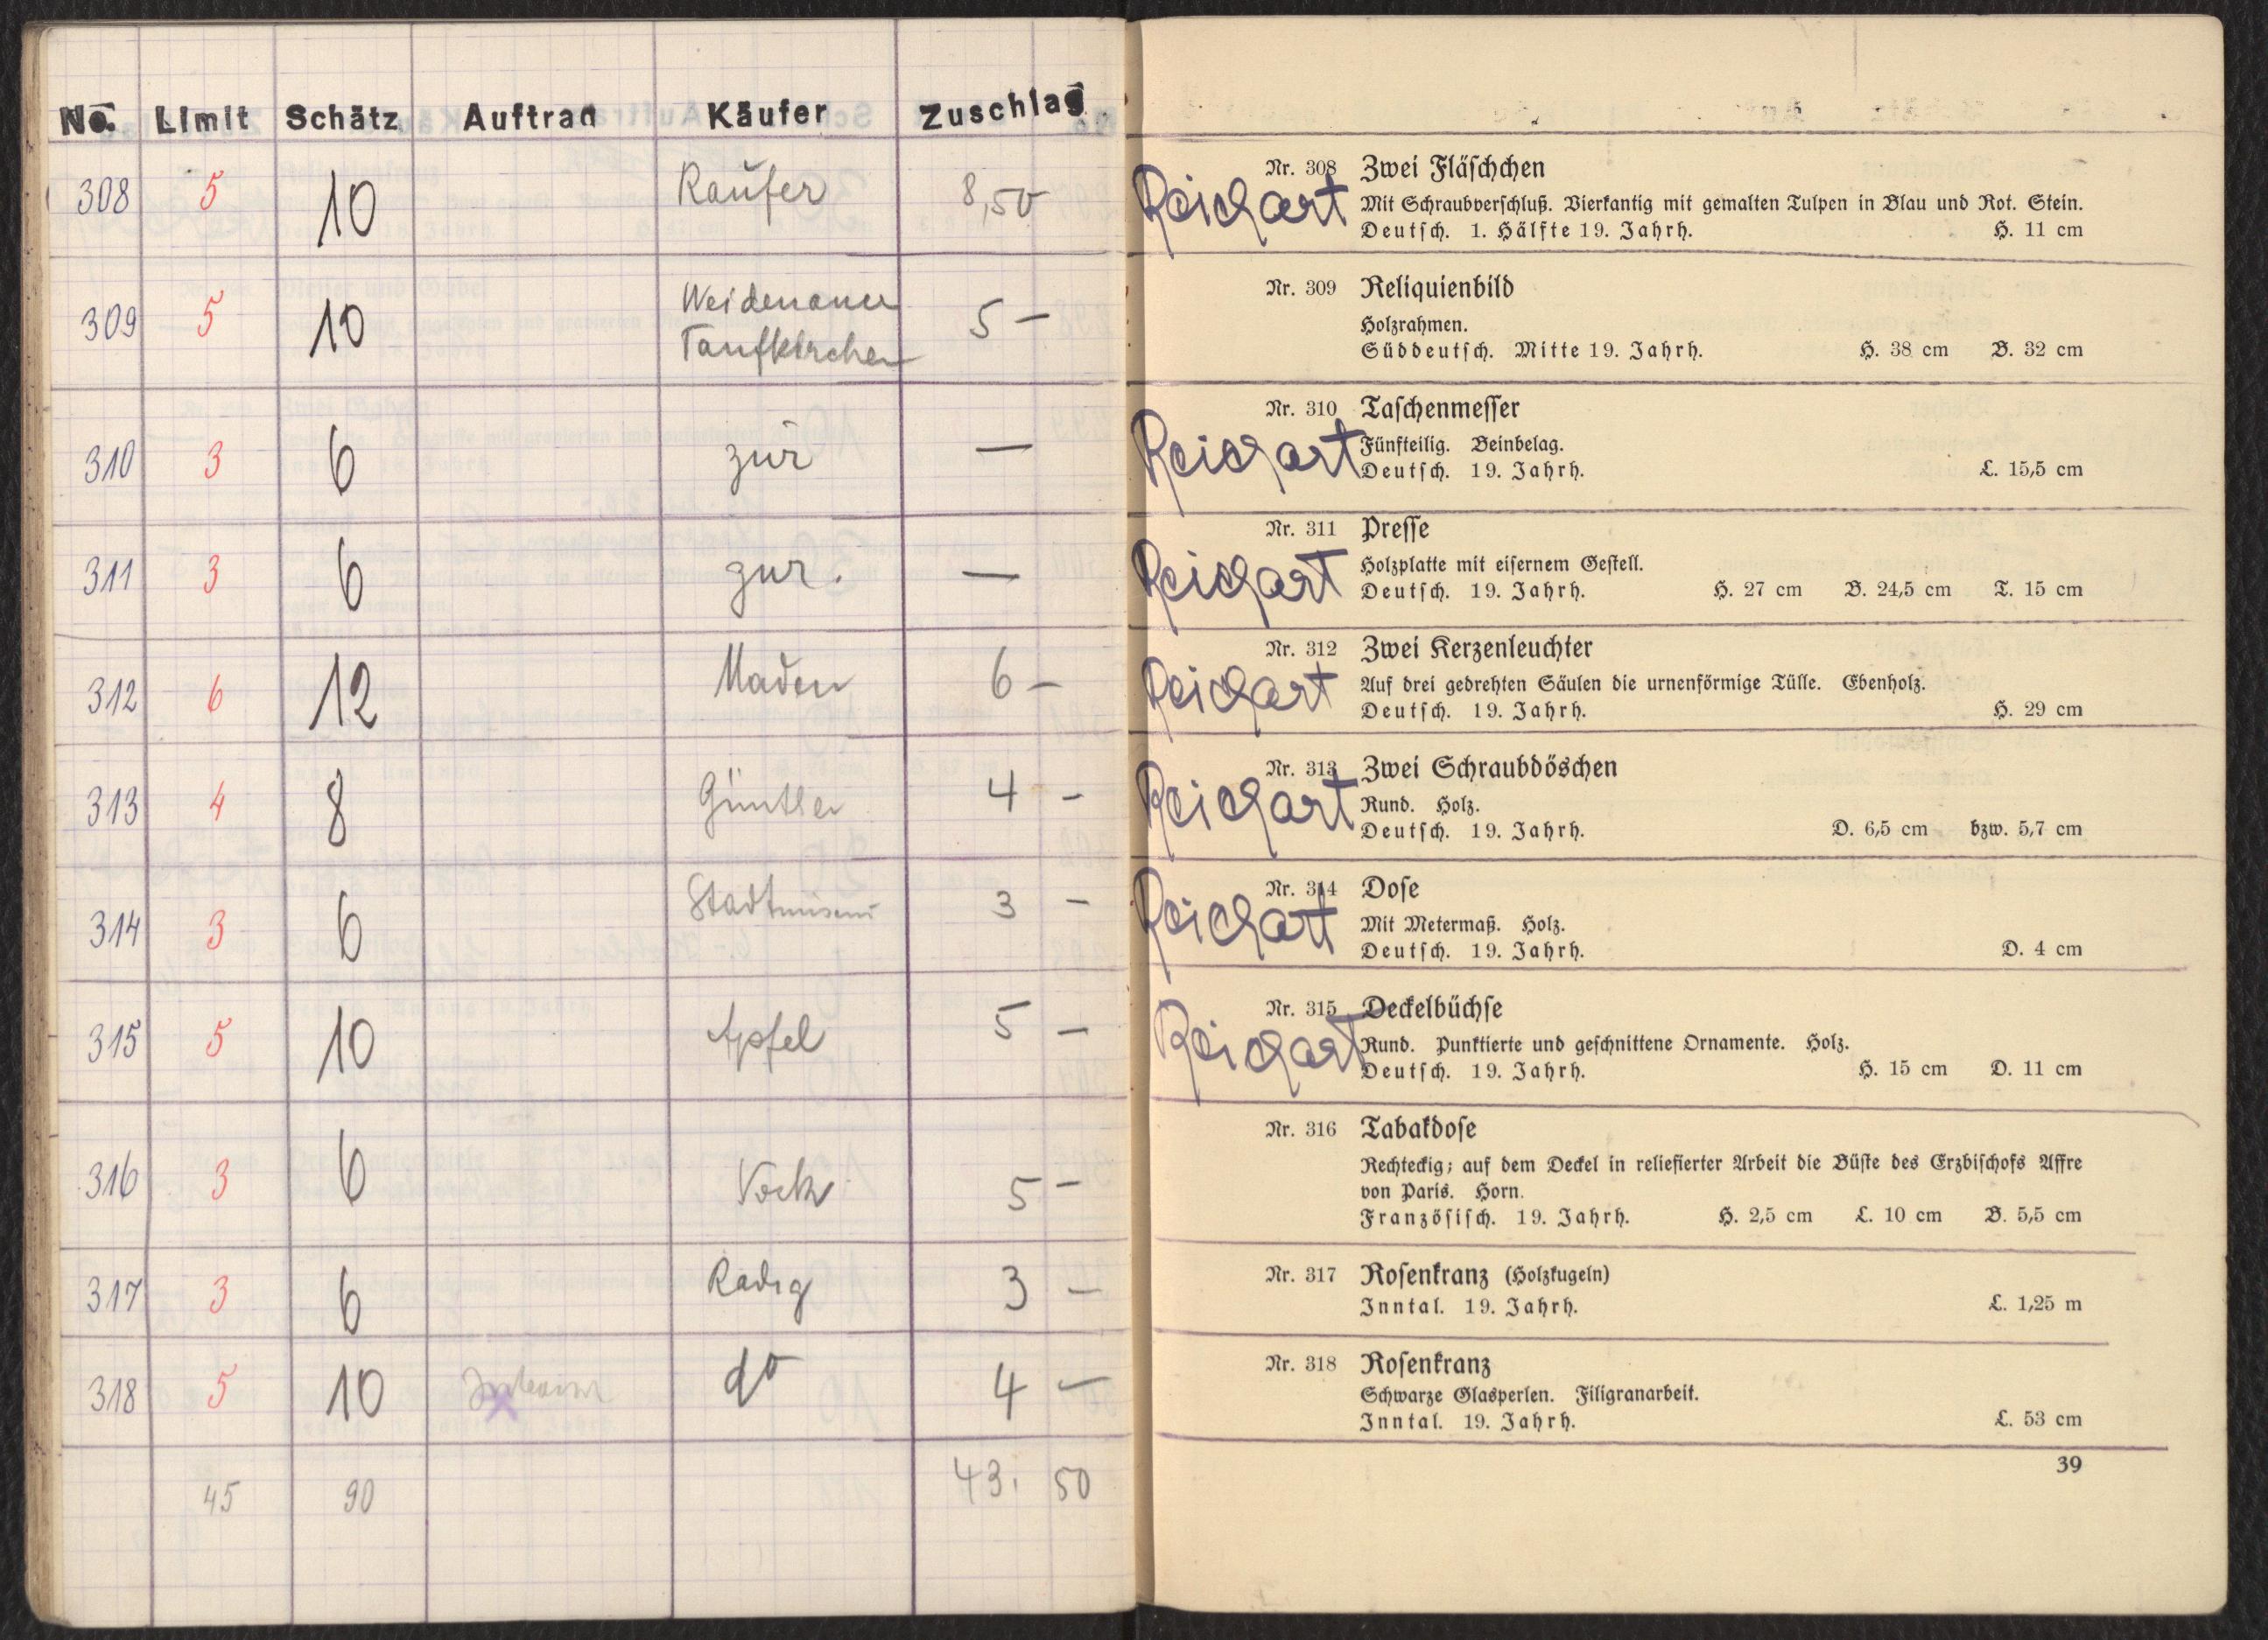 No. Limit Schätz Auftrag Käufer Zuschlag
308 5 10 Kaufer 8,50
309 5 10 Weidenauer
Taufkirchen 5 —
310 3 6 zür —
311 3 6 zur. —
312 6 12 Maden 6 —
313 4 8 Günther 4 —
314 3 6 Stadtmuseum 3 —
315 5 10 Apfel 5 —
316 3 6 5 —
317 3 6 Radig 3 —
318 5 10 do 4 —
45 90 43. 50
Nr. 308 Zwei Fläschchen
Reichart
Mit Schraubverschluß. Vierkantig mit gemalten Tulpen in Blau und Rot. Stein.
Deutsch. 1. Hälfte 19. Jahrh. H. 11 cm
Nr. 309 Reliquienbild
Holzrahmen.
Süddeutsch. Mitte 19. Jahrh. H. 38 cm B. 32 cm
Nr. 310 Taschenmesser
Reichart
Fünfteilig. Beinbelag.
Deutsch. 19. Jahrh. L. 15,5 cm
Nr. 311 Presse
Reichart
Holzplatte mit eisernem Gestell.
Deutsch. 19. Jahrh. H. 27 cm B. 24,5 cm T. 15 cm
Nr. 312 Zwei Kerzenleuchter
Reichart
Auf drei gedrehten Säulen die urnenförmige Tülle. Ebenholz.
Deutsch. 19. Jahrh. H. 29 cm
Nr. 313 Zwei Schraubdöschen
Reichart
Rund. Holz.
Deutsch. 19. Jahrh. D. 6,5 cm bzw. 5,7 cm
Nr. 314 Dose
Reichart
Mit Metermaß. Holz.
Deutsch. 19. Jahrh. D. 4 cm
Nr. 315 Deckelbüchse
Reichart
Rund. Punktierte und geschnittene Ornamente. Holz.
Deutsch. 19. Jahrh. H. 15 cm D. 11 cm
Nr. 316 Tabakdose
Rechteckig; auf dem Deckel in reliefierter Arbeit die Büste des Erzbischofs Affre
von Paris. Horn.
Französisch. 19. Jahrh. H. 2,5 cm L. 10 cm B. 5,5 cm
Nr. 317 Rosenkranz (Holzkugeln)
Inntal. 19. Jahrh. L. 1,25 m
Nr. 318 Rosenkranz
Schwarze Glasperlen. Filigranarbeit.
Inntal. 19. Jahrh. L. 53 cm
39